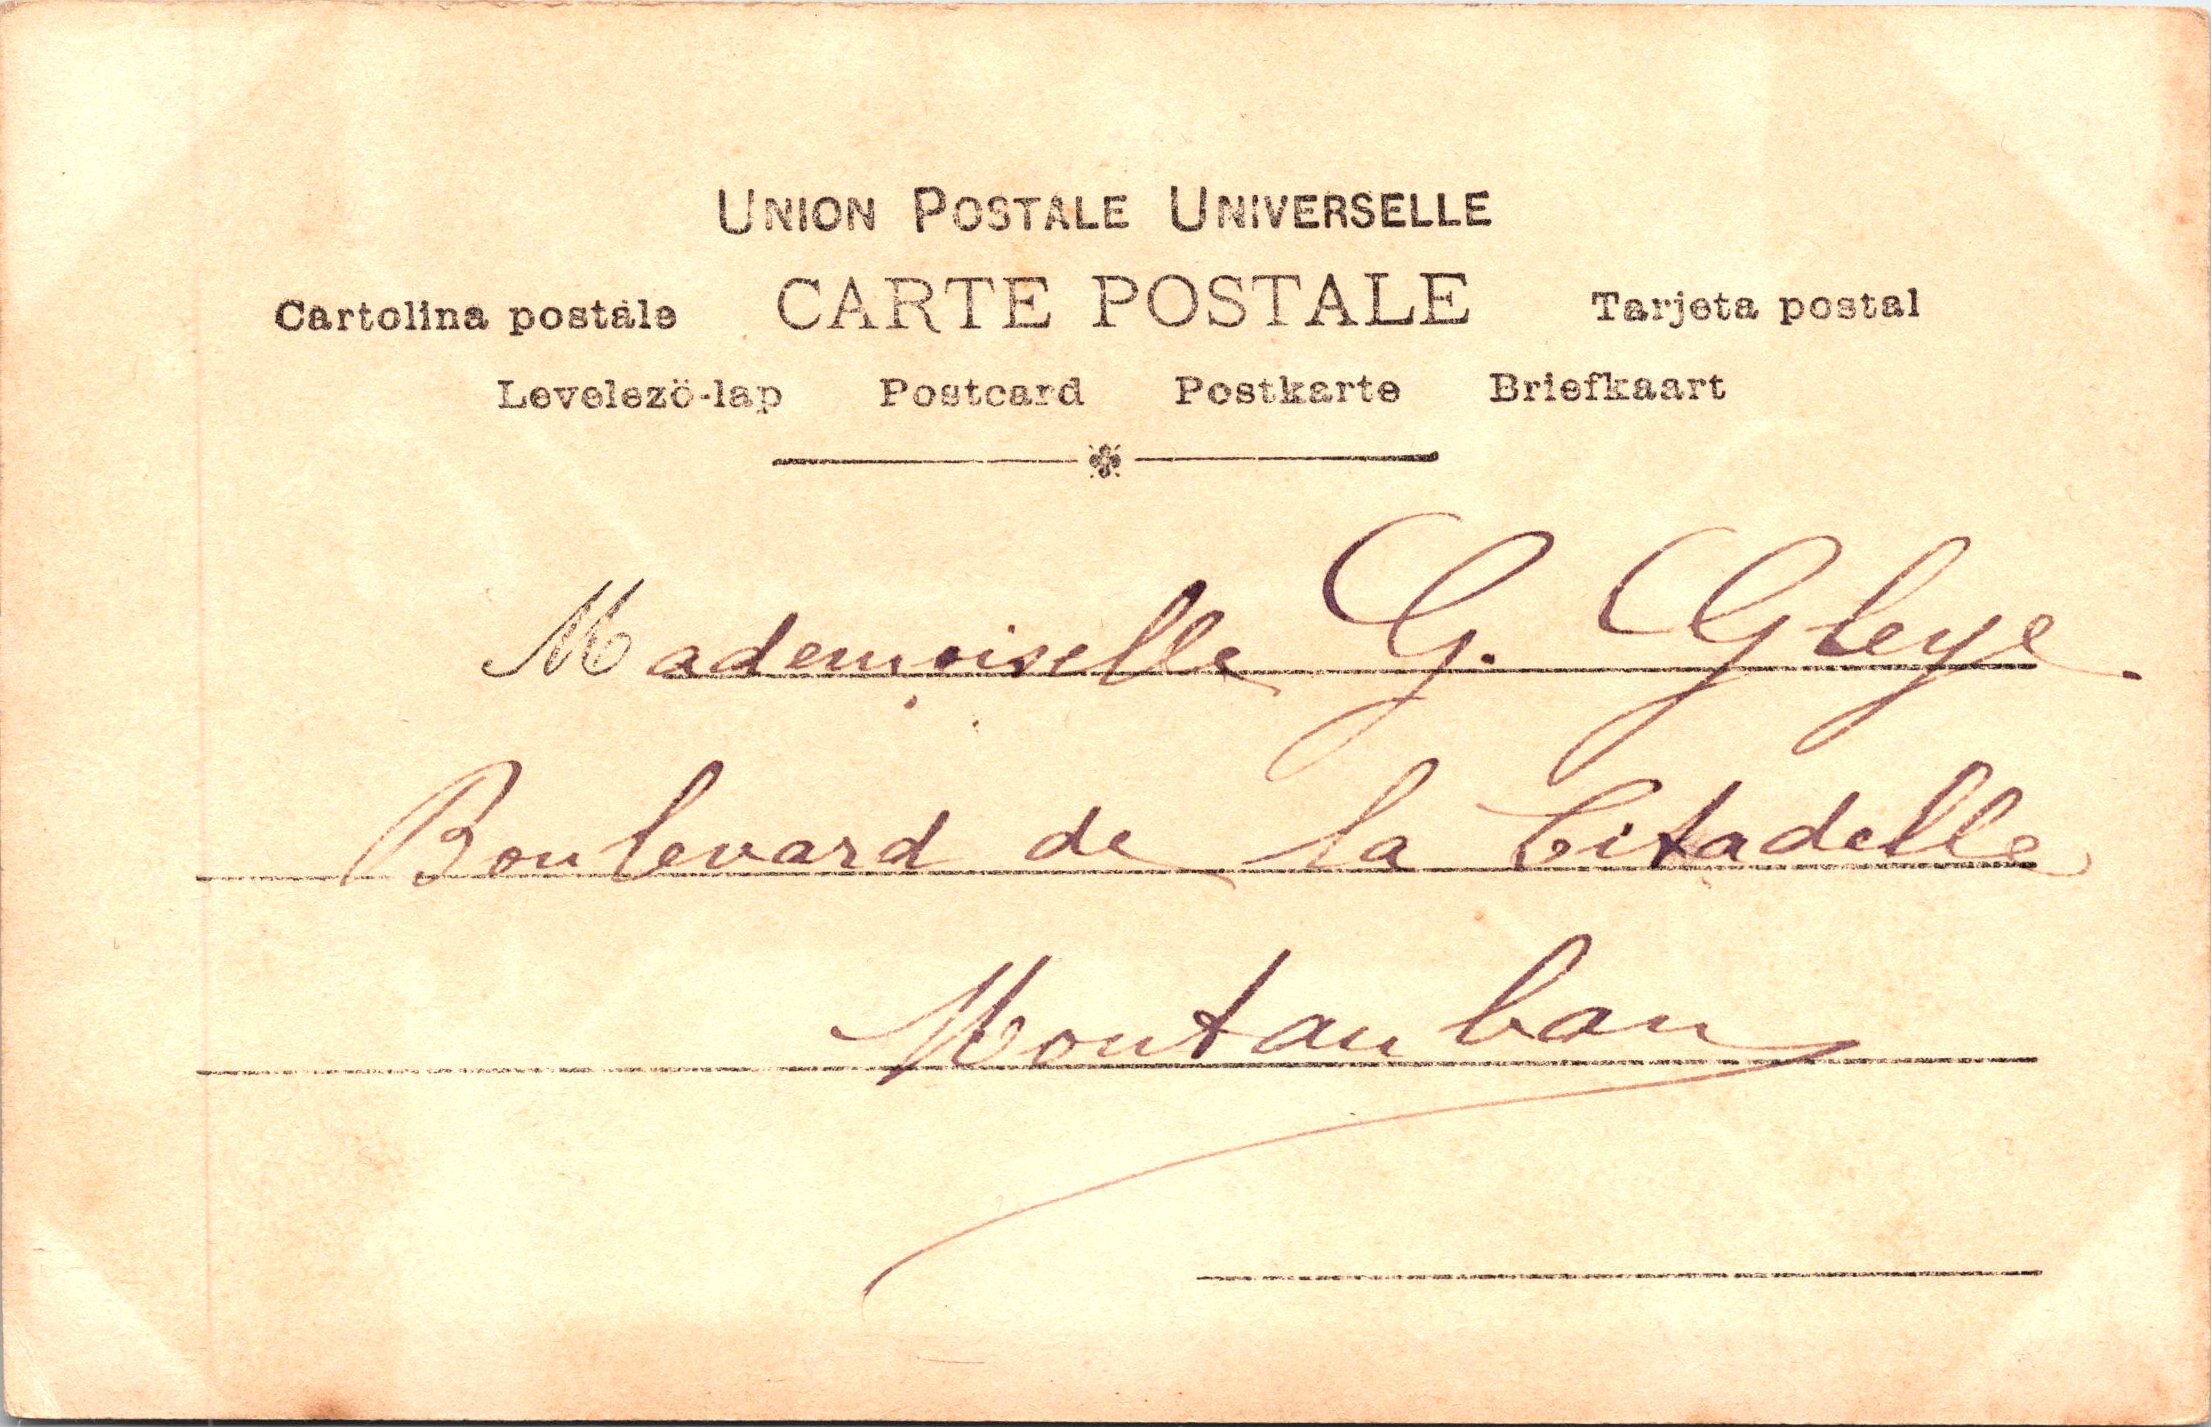 UNION POSTALE UNIVERSELLE
Cartolina postale CARTE POSTALE Tarjeta postal
Levelezö-lap Postcard Postkarte Briefkaart
Mademoiselle G. Gleye.
Boulevard de la Citadelle
Montauban